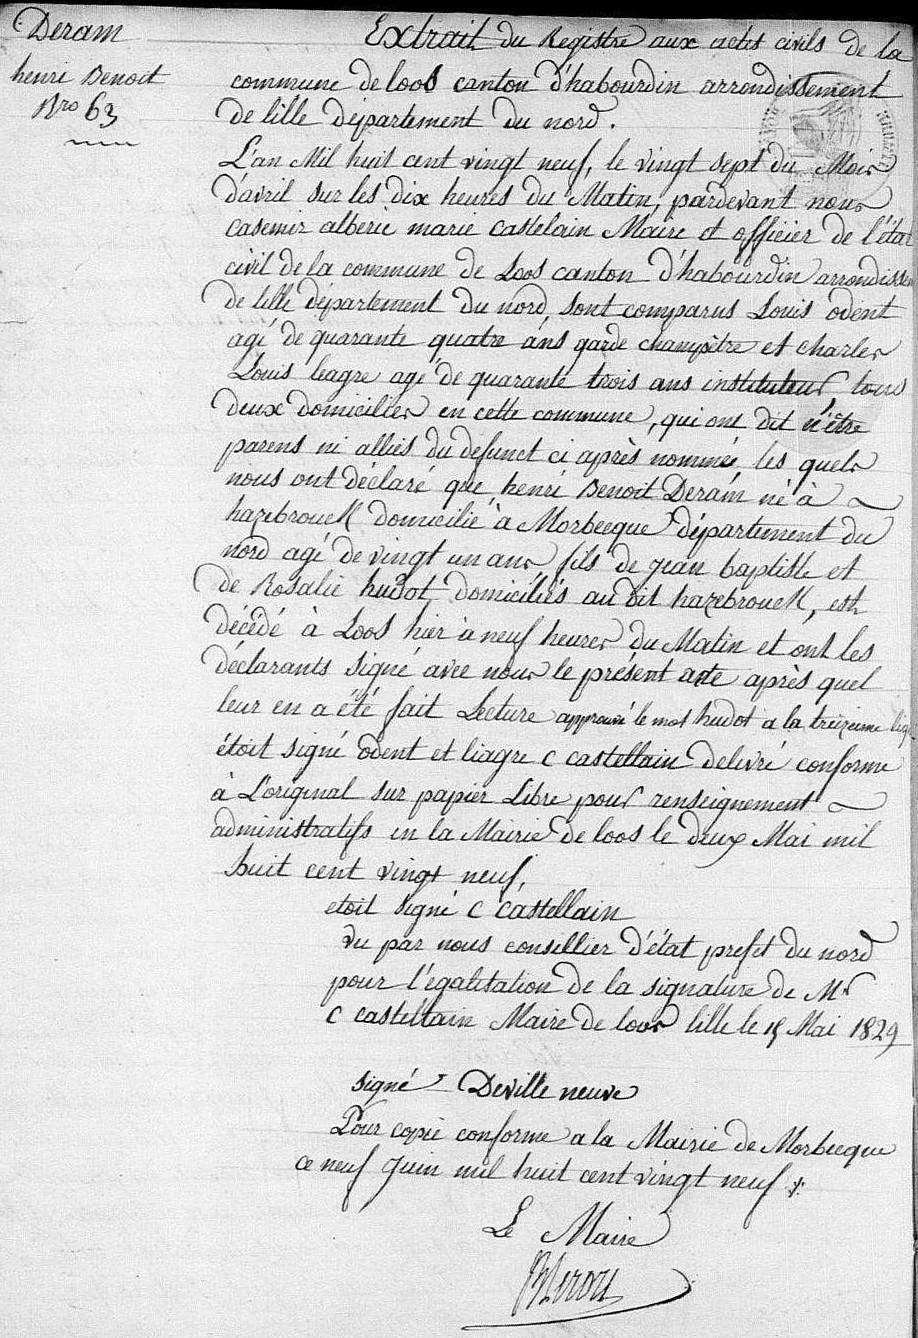 Deram
henri Benoit
Nro 63
Extrait du Registre aux actes civils de la
commune de loos canton d'habourdin arrondissement
de lille département du nord.
L'an Mil huit cent vingt neuf, le vingt sept du Mois
d'avril sur les dix heures du Matin, pardevant nous
casemir alberic marie castelain Maire et officier de l'état
civil de la commune de Loos canton d'habourdin arrondissem
de lille département du nord, sont comparus Louis odent
agé de quarante quatre ans garde champêtre et charles
Louis leagre agé de quarante trois ans instituteur, tous
deux domiciliés en cette commune, qui ont dit n'être
parens ni alliés du defunct ci après nommé, les quels
nous ont déclaré que henri Benoit Deram né à
hazebrouck domicilié à Morbecque département du
nord agé de vingt un ans fils de jean baptiste et
de Rosalie hudot domiciliés au dit hazebrouck, est
décédé à Loos hier à neuf heures du Matin et ont les
déclarants signé avec nous le présent acte après quel
leur en a été fait Lecture approuvé le mot hudot a la treizieme lig
étoit signé odent et liagre c castellain delivré conforme
à L'original sur papier Libre pour renseignement
administratifs en la Mairie de loos le deux Mai mil
huit cent vingt neuf,
etoit signé c castellain
vu par nous consillier d'état prefet du nord
pour l'égalitation de la signature de Mr
c castellain Maire de loos lille le 15 Mai 1829
signé Deville neuve
Pour copie conforme a la Mairie de Morbecque
ce neuf Juin mil huit cent vingt neuf
Le Maire